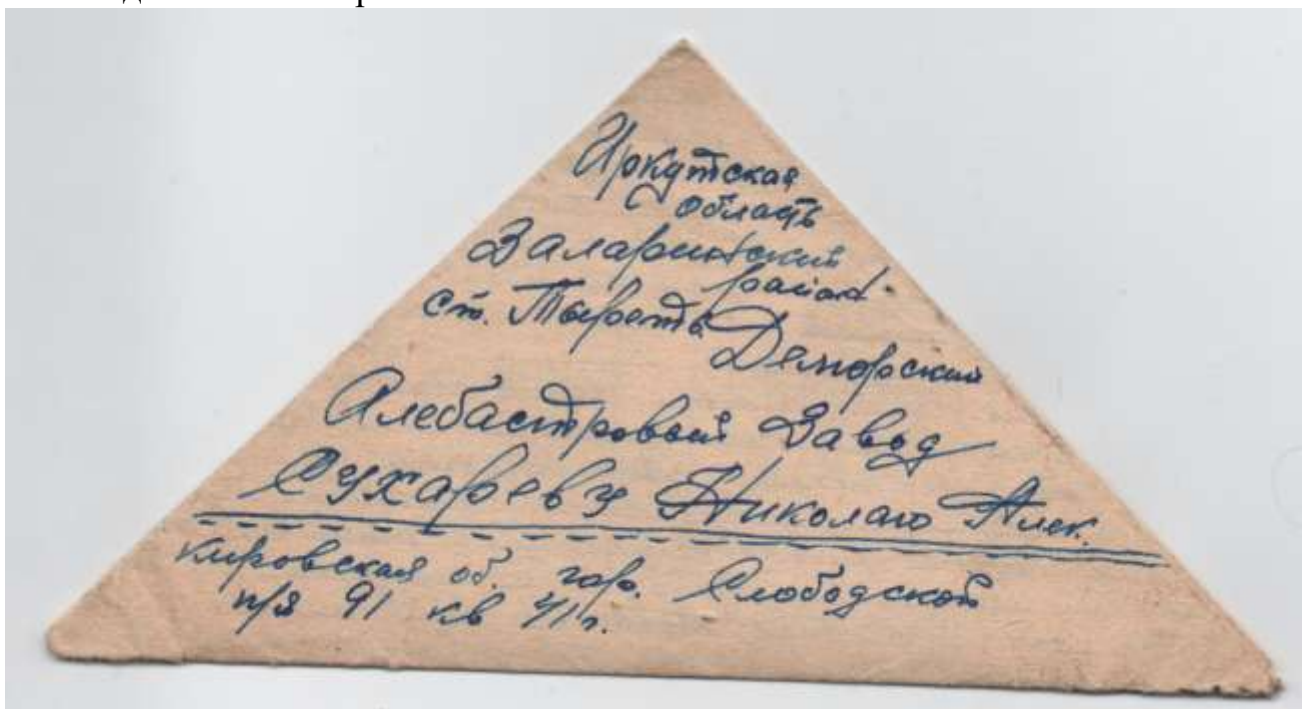 Иркутская
область
Заларинский
район
ст. Тыреть Деморский
Алебастровый Завод
Сухареву Николаю Алек.
Кировская об. гор. Слободской
п/я 91 кв 41г.